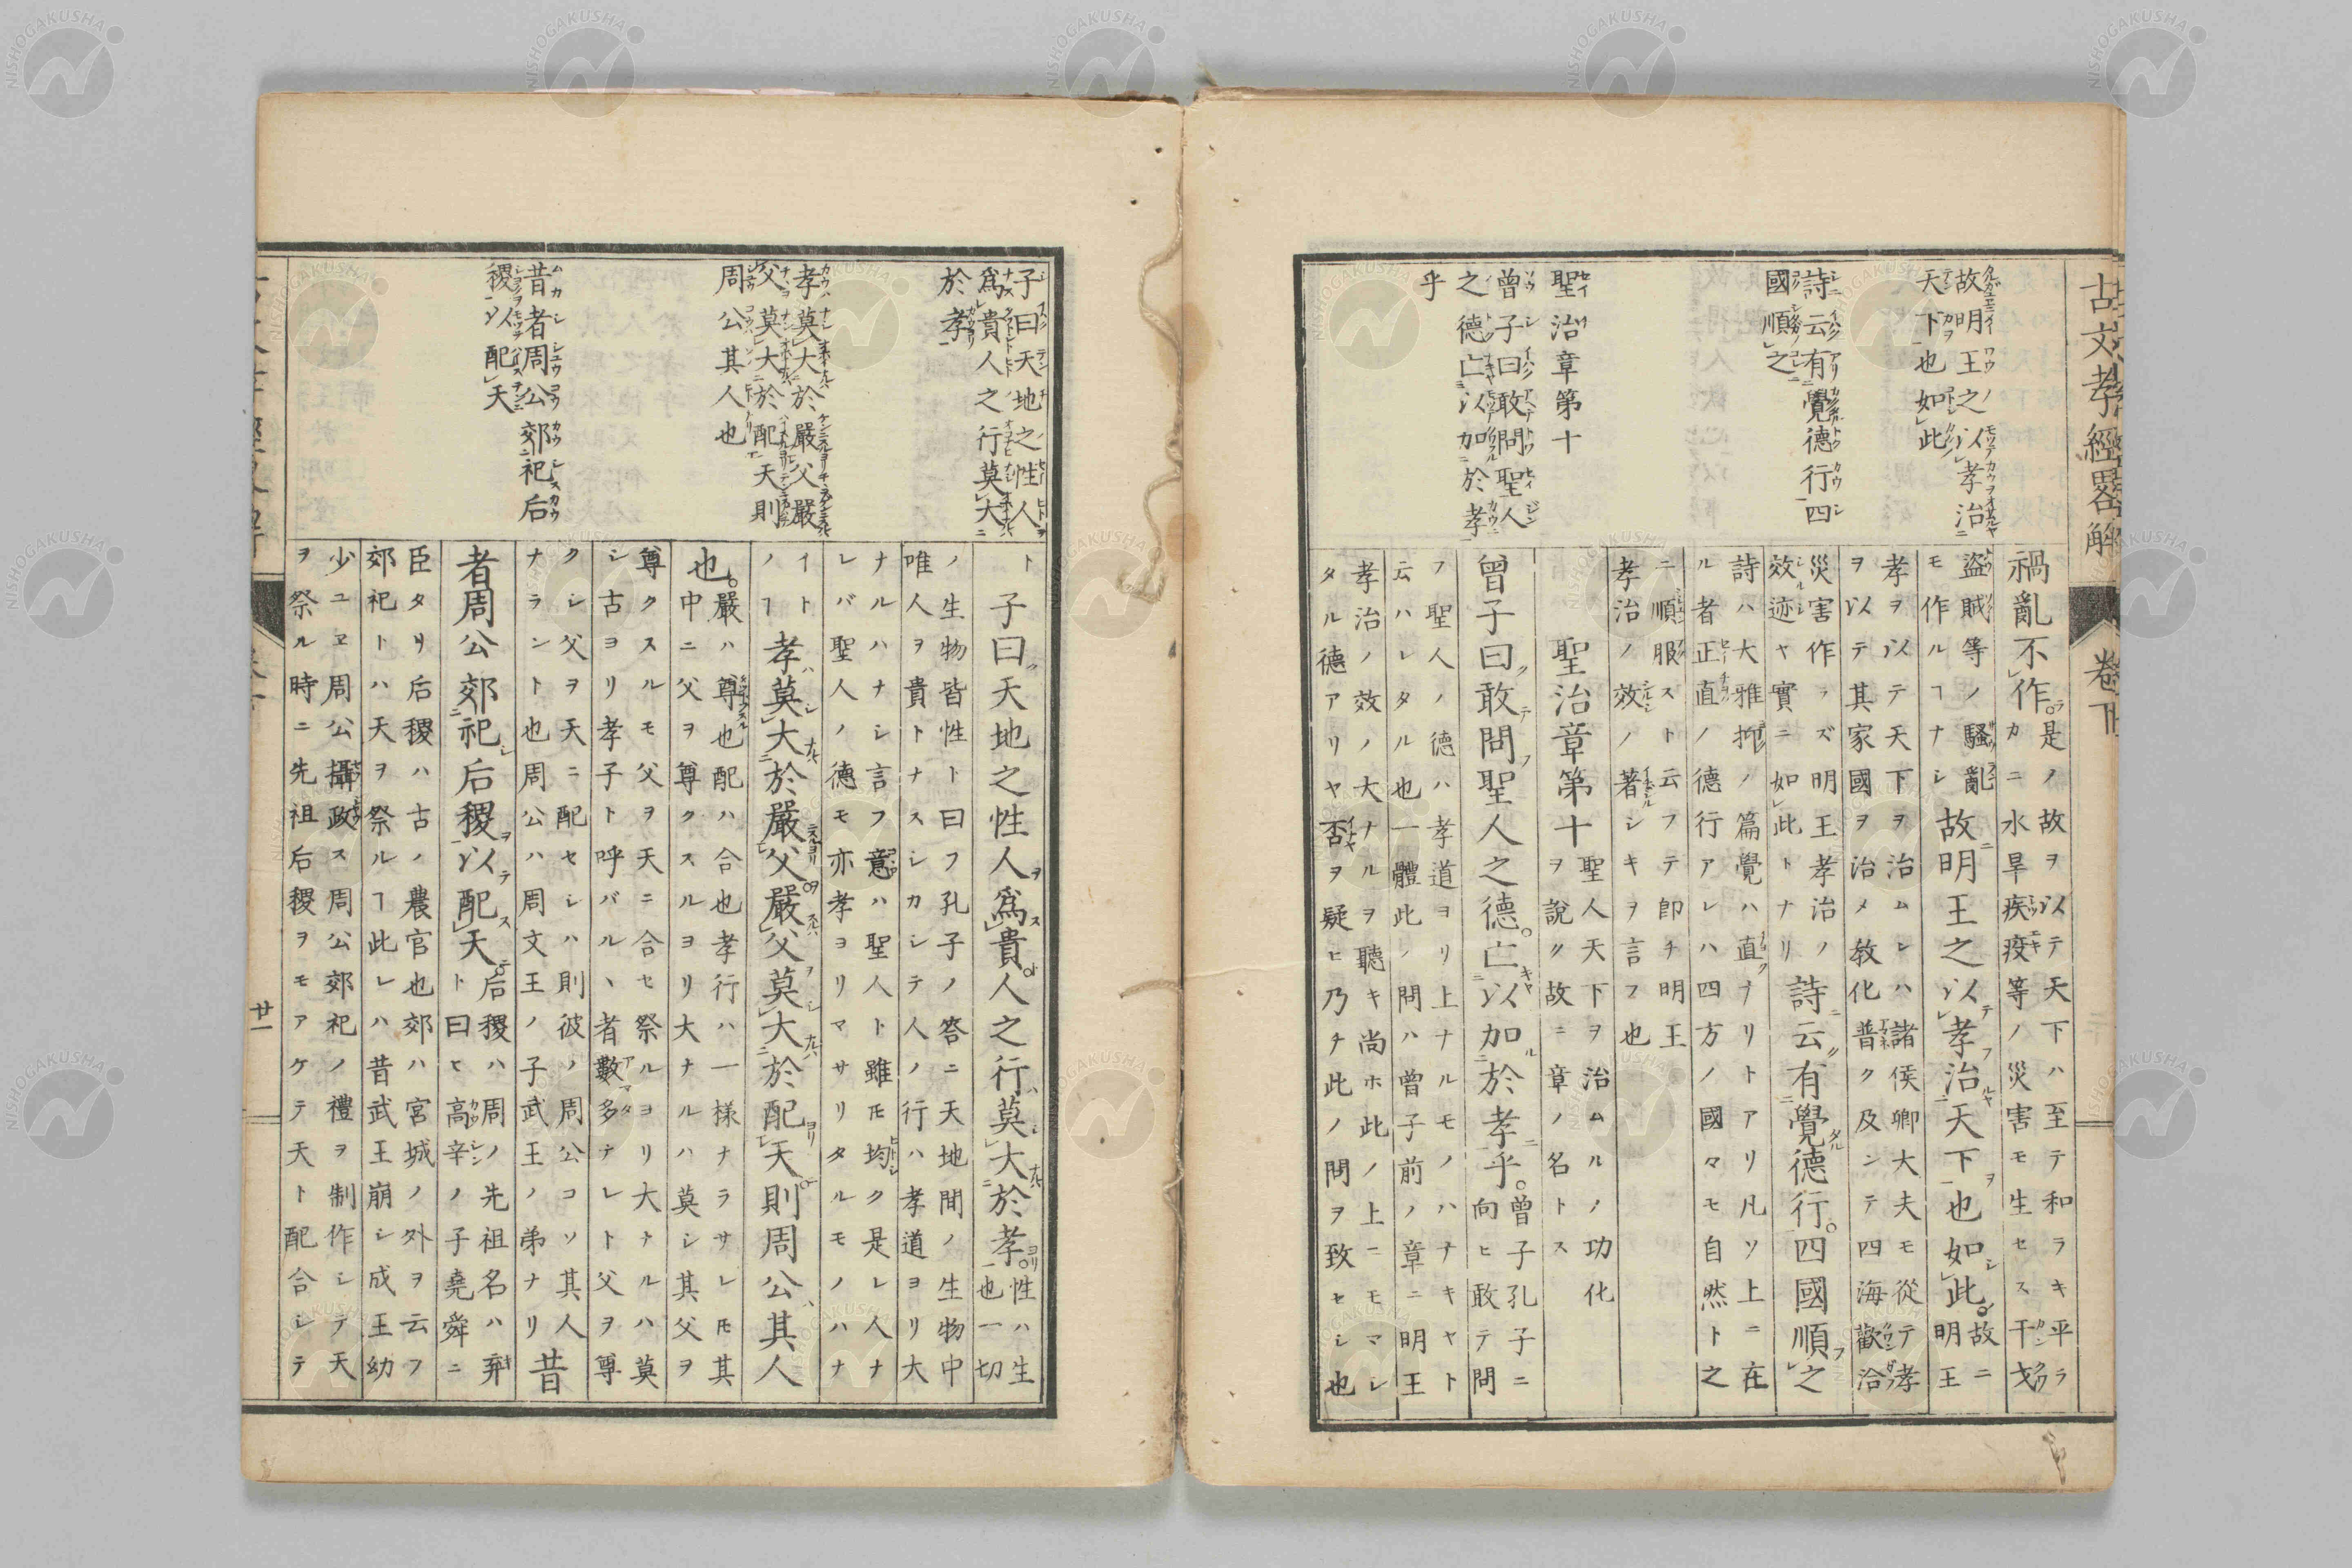 古文孝經畧解
卷下
故明王之以孝治
天下也如此
詩云有覺德行四
國順之
聖治章第十
曾子曰敢問聖人
之德亡以加於孝
乎
禍亂不作
是ノ故ヲ以テ天下ハ至テ和ラキ平ラ
カニ水旱疾疫等ノ災害モ生セス干戈
盜賊等ノ騷亂
モ作ルヿナシ
故明王之以孝治天下也如此
故ニ
明王
孝ヲ以テ天下ヲ治ムレハ諸侯卿大夫モ從テ孝
ヲ以テ其家國ヲ治メ教化普ク及ンテ四海歡洽
災害作ラズ明王孝治ノ
效迹ヤ實ニ如此トナリ
詩云有覺德行四國順之
詩ハ大雅抑ノ篇覺ハ直ナリトアリ凡ソ上ニ在
ル者正直ノ德行アレハ四方ノ國々モ自然ト之
ニ順服スト云フテ卽チ明王
孝治ノ效ノ著シキヲ言フ也
聖治章第十
聖人天下ヲ治ムルノ功化
ヲ說ク故ニ章ノ名トス
曾子曰敢問聖人之德亡以加於孝乎
曾子孔子ニ
向ヒ敢テ問
フ聖人ノ德ハ孝道ヨリ上ナルモノハナキヤト
云ハレタル也一體此ノ問ハ曾子前ノ章ニ明王
孝治ノ效ノ大ナルヲ聽キ尚ホ此ノ上ニモマシ
タル德アリヤ否ヲ疑ヒ乃チ此ノ問ヲ致セシ也
子曰天地之性人
爲貴人之行莫大
於孝
孝莫大於嚴父嚴
父莫大於配天則
周公其人也
昔者周公郊祀后
稷以配天
ト
子曰天地之性人爲貴人之行莫大於孝
性ハ生
也一切
ノ生物皆性ト曰フ孔子ノ答ニ天地間ノ生物中
唯人ヲ貴トナスシカシテ人ノ行ハ孝道ヨリ大
ナルハナシ言フ意ハ聖人ト雖ㇳモ均ク是レ人ナ
レバ聖人ノ德モ亦孝ヨリマサリタルモノハナ
イト
ノヿ
孝莫大於嚴父嚴父莫大於配天則周公其人
也
嚴ハ尊也配ハ合也孝行ハ一樣ナラサレㇳモ其
中ニ父ヲ尊クスルヨリ大ナルハ莫シ其父ヲ
尊クスルモ父ヲ天ニ合セ祭ルヨリ大ナルハ莫
シ古ヨリ孝子ト呼バルヽ者數多アレト父ヲ尊
クシ父ヲ天ニ配セシハ則彼ノ周公コソ其人
ナラント也周公ハ周文王ノ子武王ノ弟ナリ
昔
者周公郊祀后稷以配天
后稷ハ周ノ先祖名ハ弃
ト曰ヒ高辛ノ子堯舜ニ
臣タリ后稷ハ古ノ農官也郊ハ宮城ノ外ヲ云フ
郊祀トハ天ヲ祭ルヿ此レハ昔武王崩シ成王幼
少ユヱ周公攝政ス周公郊祀ノ禮ヲ制作シテ天
ヲ祭ル時ニ先祖后稷ヲモアケテ天ト配合シテ
廿一